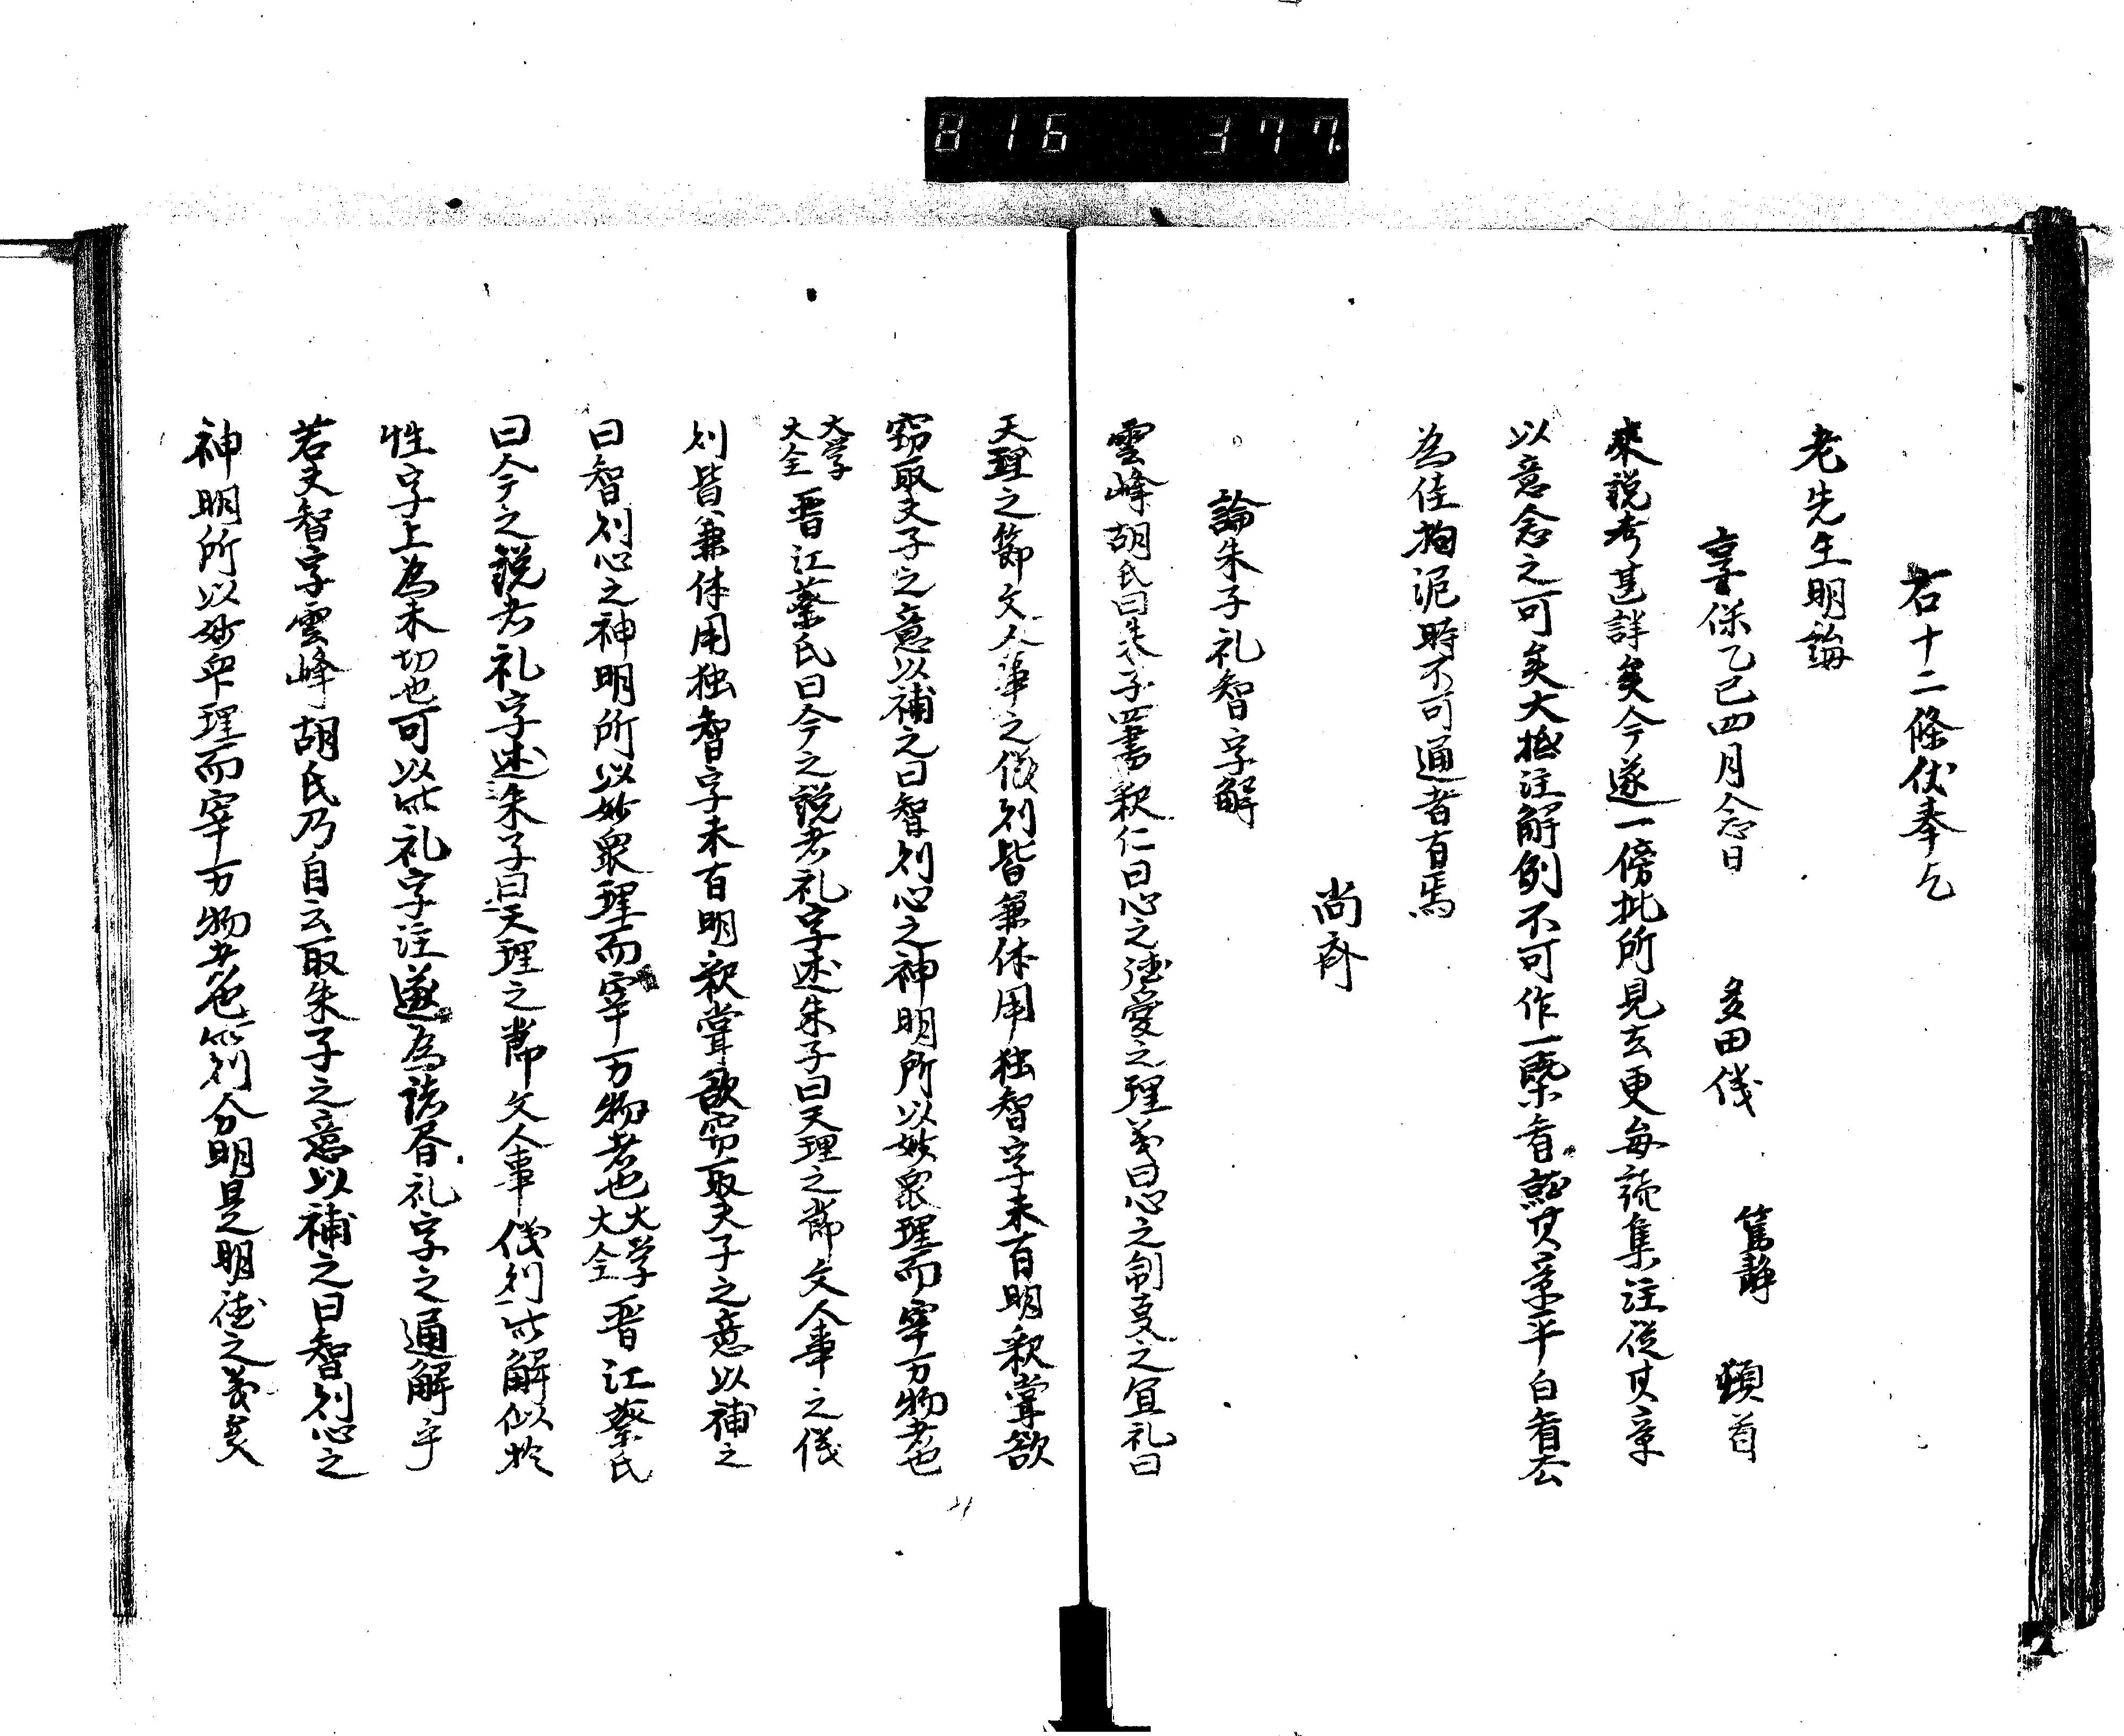 816 377.
右十二條伏奉乞
老先生明誨
享保乙巳四月念日 多田儀 篤靜 頓首
來說考甚詳矣今遂一傍批所見去更每讀集注從其章
以意念之可矣大抵注解例不可作一槩看就其章平白看去
為佳拘泥時不可通者有焉
尚齋
論朱子礼智字解
雲峰胡氏曰朱子四書釈仁曰心之德愛之理義曰心之制事之宜礼曰
天理之節文人事之儀則皆兼体用独智字未有明釈嘗欲
窃取朱子之意以補之曰智則心之神明所以妙衆理而宰万物者也
大学大全 晋江蔡氏曰今之説者礼字述朱子曰天理之節文人事之儀
則皆兼体用独智字未有明釈嘗欲窃取夫子之意以補之
曰智則心之神明所以妙衆理而宰万物者也大学大全 晋江蔡氏
曰今之説者礼字述朱子曰天理之節文人事儀則此解似於
性字上為未切也可以此礼字注遂為諸眷礼字之通解乎
若夫智字雲峰胡氏乃自云取朱子之意以補之曰智則心之
神明所以妙衆理而宰万物者也 則分明是明德之義矣